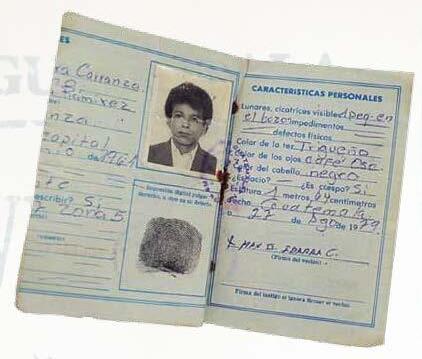 ES
ra Carranza
Ramirez
nza.
apital
de 1961
scribir? Si
Zona 5
Impresión digital pulgar
derecho, o dice en su defecto
CARACTERISTICAS PERSONALES
Lunares, cicatrices visibles 1 peq. en
el bozo impedimentos
defectos físicos
Color de la tez Trigueño
Color de los ojos café Osc.
Color del cabello negro
¿Espacio? ¿Es crespo? Si
Estatura 1 metros, 64 centímetros
Fecha Guatemala
a 27 de Ago de 1979
(Firma del vecino)
Firma del testigo si ignora firmar el vecino